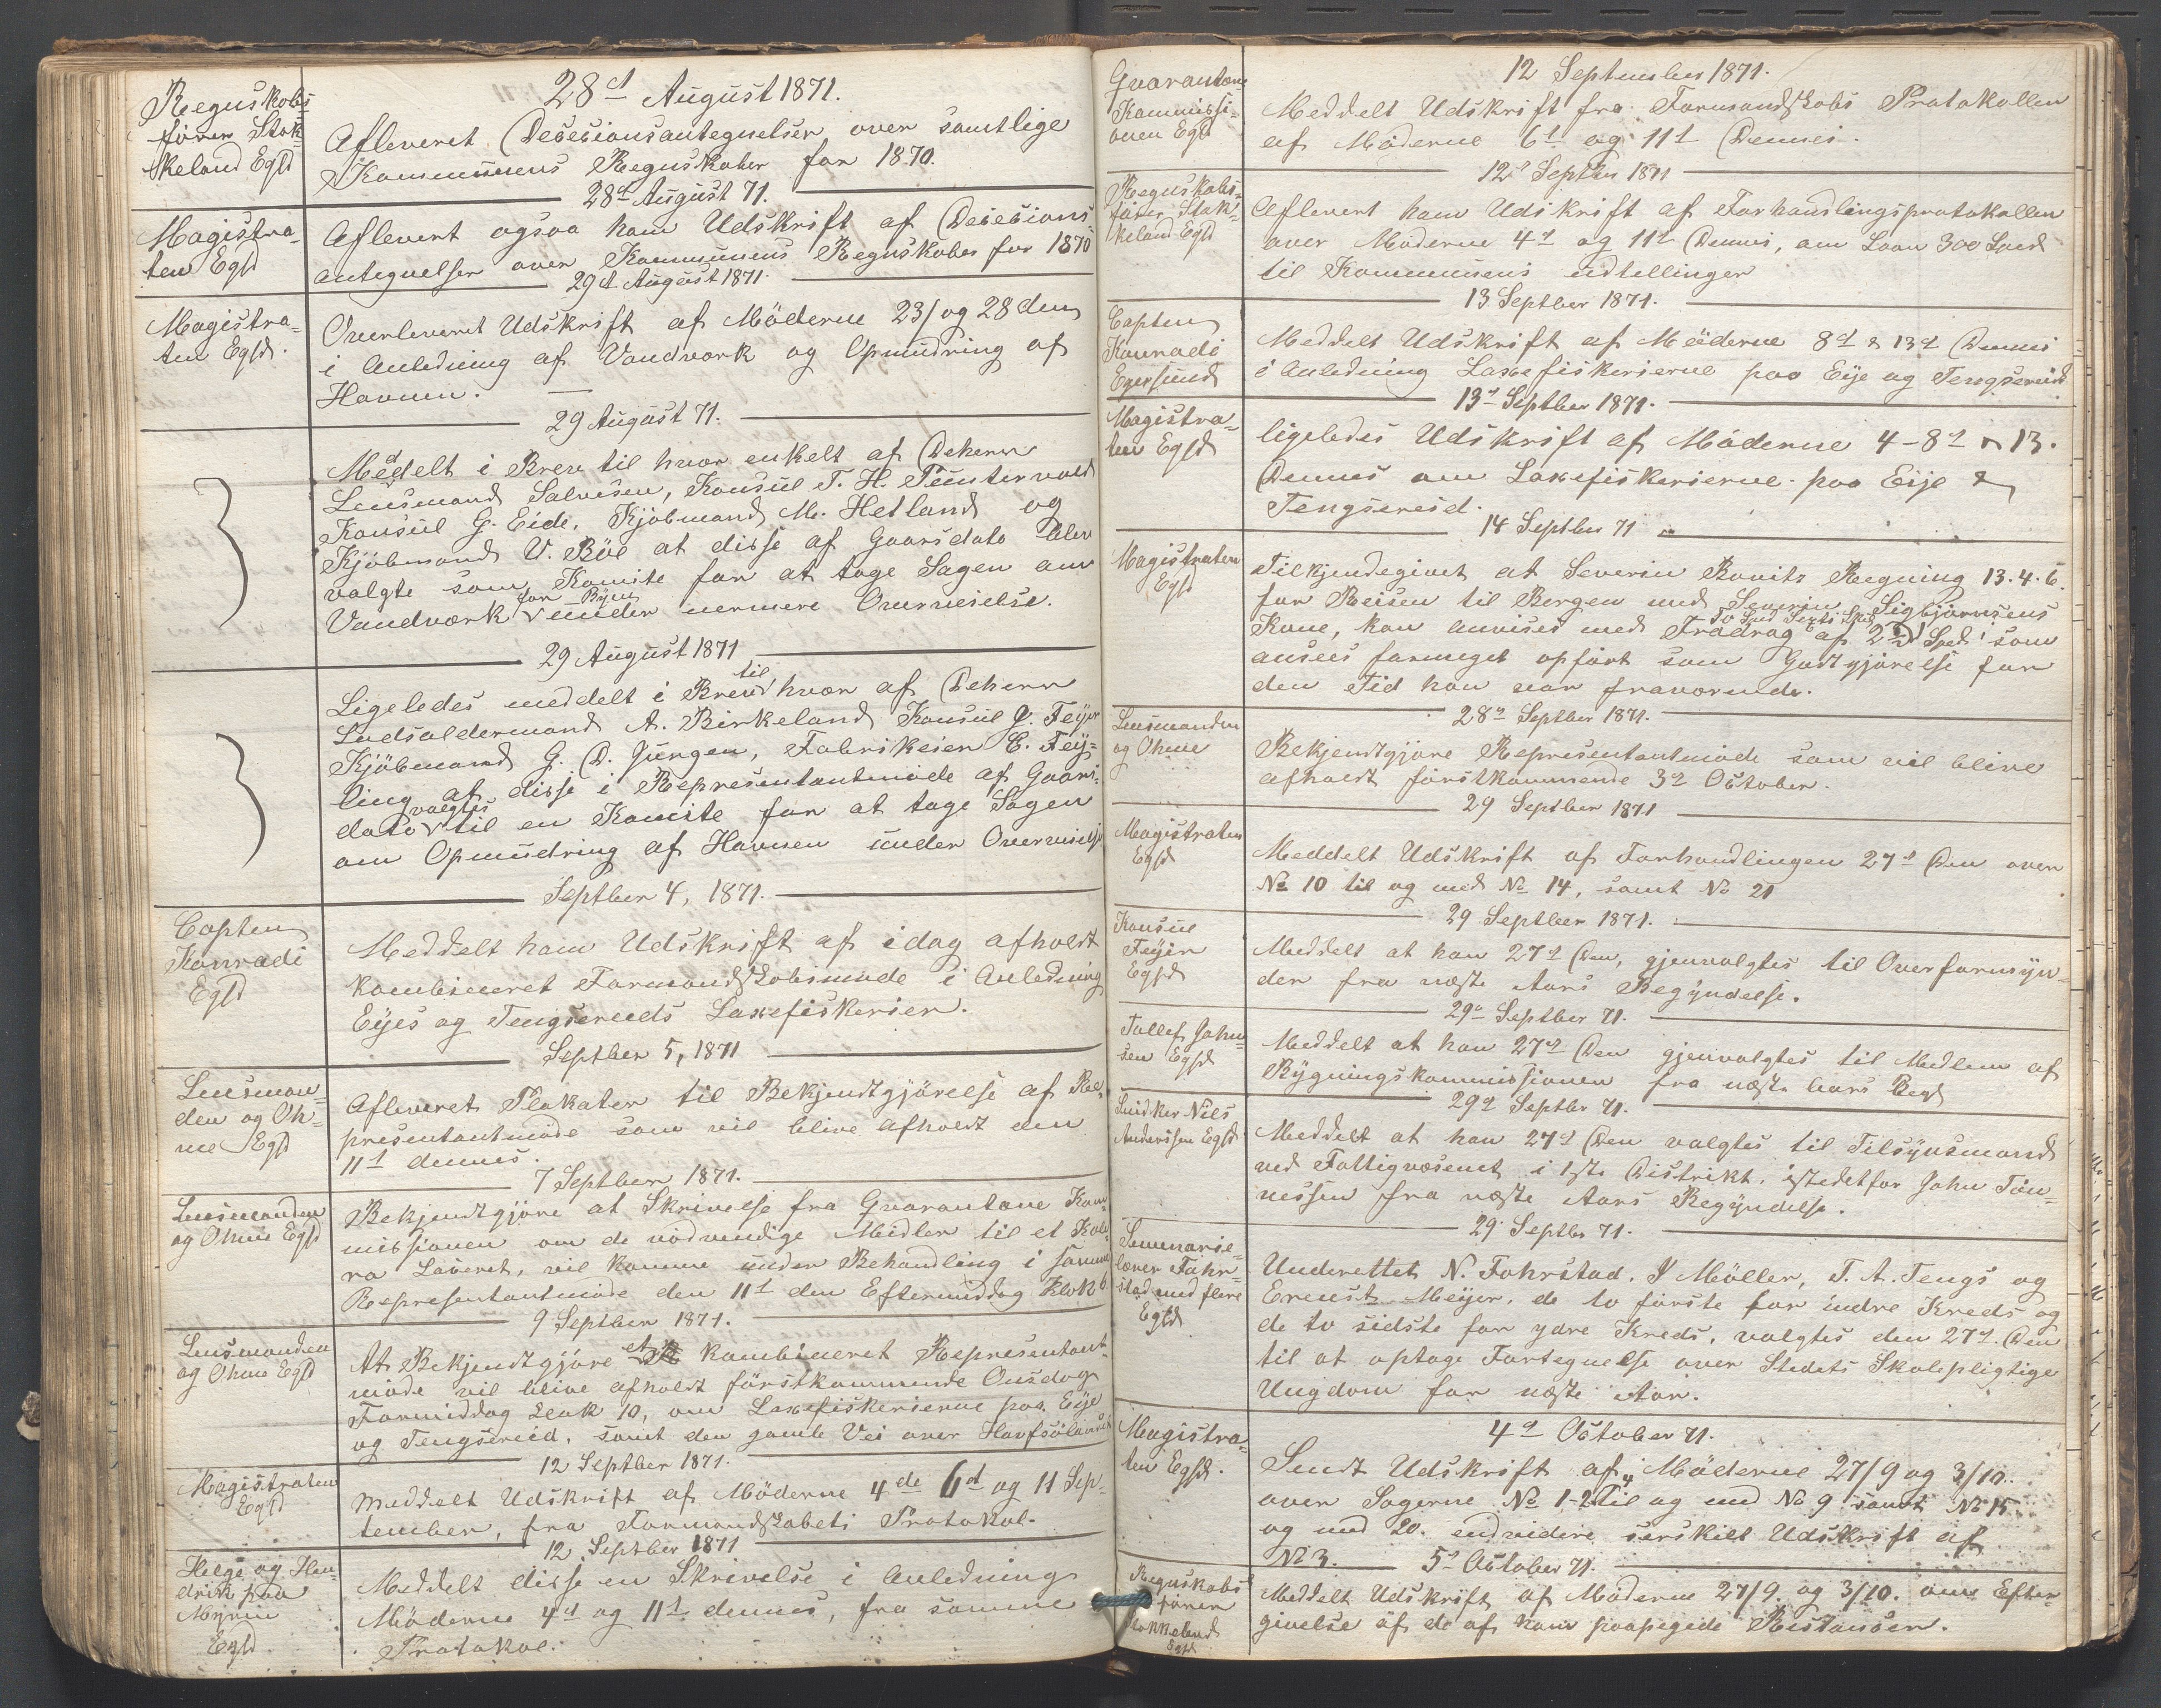 Regnskabs
fører Stok
keland Egsd
28d August 1871.
Afleveret Desesionsantegnelser over samtlige
Kommunens Regnskaber for 1870.
28d August 71.
Magistra
ten Egsd
Aflevert ogsaa ham Udskrift af Desesions
antegnelser over Kommunens Regnskaber for 1870
29d August 1871.
Magistra
ten Egsd.
Overleveret Udskrift af Møderne 23/ og 28 den
i Anledning af Vandværk og Opmudring af
Havnen.
29 August 71.
Meddelt i Brev til hvær enkelt af Deherr
Lensmand Salvesen, Konsul T. H. Puntervold
Konsul G. Eide. Kjøbmand M. Hetland og
Kjøbmand V. Bøe at disse af Gaarsdato blev
valgte som Komite for at tage Sagen om
Vandværk for Byen under nærmere Overveielse.
29 August 1871
Ligeledes meddelt i Brev til hvær af Deherr
Lodsoldermand A. Birkeland Konsul J. Feyer
Kjøbmand G. D. Jürgen, Fabrikeier E. Fey=
ling at disse i Representantmøde af Gaars
dato valgtes til en Komite for at tage Sagen
om Opmudring af Havnen under Overveielse
Septber 4, 1871.
Capten
Konradi
Egsd
Meddelt ham Udskrift af idag afholdt
kombineret Formandskabsmøde i Anledning
Eyes og Tengsereids Laxefiskerier.
Septber 5, 1871
Lensman=
den og Oh=
me Egsd
Afleveret Plakater til Bekjendtgjørelse af Re=
presentantmøde som vil blive afholdt den
11t dennes.
7 Septber 1871.
Lensmanden
og Ohme Egsd
Bekjendtgjøre at Skrivelse fra Qvarantæne Kom
missionen om de nødvendige Midler til et Kole
ra Lazeret, vil komme under Behandling i samme
Representantmøde den 11t den Eftermiddag Klok 6.
9 Septber 1871.
Lensmanden
og Ohme Egsd
At Bekjendtgjøre et kombineret Representant
møde vil blive afholdt førstkommende Onsdag
Formiddag Klok 10, om Laxefiskerierne paa Eye
og Tengsereid, samt den gamle Vei over
12 Septber 1871.
Magistraten
Egsd
meddelt Udskrift af Møderne 4de 6d og 11 Sep
tember, fra Formandskabets Protokol.
12 Septber 1871
Helge og Hen
drik paa
Myren
Egsd
Meddelt disse en Skrivelse i Anledning
Møderne 4d og 11t dennes, fra samme
Protokol.
Qvarantæne
Kommissi=
onen Egsd
12 September 1871.
Meddelt Udskrift fra Formandskabs Protokollen
af Møderne 6t og 11t Dennes.
12t Septbr 1871
Regnskabs=
fører Stok=
keland Egsd
Aflevert ham Udskrift af Forhandlingsprotokollen
over Møderne 4d og 11t Dennes, om Laan 300 Spd
til Kommunens udtellinger
13 Septber 1871.
Capten
Konradi
Egersund
Meddelt Udskrift af Møderne 8d & 13d Dennes
i Anledning Laxefiskerierne paa Eye og Tengsereid
13d Septber 1871.
Magistra=
ten Egsd
ligeledes Udskrift af Møderne 4-8d & 13.
Dennes om Laxefiskerierne paa Eije &
Tengsereid.
14 Septbr 71
Magistraten
Egsd
Tilkjendegivet at Severin Bovits Regning 13.4.6.
for Reisen til Bergen med Severin Sigbjørnsens
Kone, kan anvises med Fradrag af 2½ Spd som
ansees formeget opført som Godtgjørelse for
den Tid han var fraværende.
28d Septber 1871.
Lensmanden
og Ohme
Bekjendtgjøre Representantmøde som vil blive
afholdt førstkommende 3d October.
29 Septber 1871
Magistraten
Egsd
Meddelt Udskrift af Forhandlingen 27d Den over
No 10 til og med No 14, samt No 21
29 Septber 1871.
Konsul
Feyer
Egsd
Meddelt at han 27d Den, gjenvalgtes til Overformyn=
der fra næste Aars Begyndelse.
29d Septber 71.
Tollef John=
sen Egsd
Meddelt at han 27d Den gjenvalgtes til Medlem af
Bygningskommissionen fra næste Aars Begd
29d Septbr 71.
Snidker Nils
Anderssen Egsd
Meddelt at han 27d Den valgtes til Tilsynsmand
ved Fattigvæsenet i 1ste Distrikt, istedetfor John Tøn=
nessen fra næste Aars Begyndelse.
29. Septbr 71.
Semenarie=
lærer Fahr=
stad med flere
Egsd
Underettet N. Fahrstad. J Møller, T. A. Tengs og
Erenst Meyer, de to første for indre Kreds og
de to sidste for ydre Kreds, valgtes den 27d. Den
til at optage Fortegnelse over Stedets Skolepligtige
Ungdom for næste Aar.
4d October 71.
Magistra=
ten Egsd.
Sendt Udskrift af Møderne 27/9 og 3/10.
over Sagerne No 1-2 4 Til og med No 9 samt No 15
og med 20. endvidere serskilt Udskrift af
No 3.
5t October 71.
Regnskabs
fører
Stokkeland
Egsd
Meddelt Udskrift af Møderne 27/9. og 3/10. om Efter
givelse af de af ham paapegede Restanser.